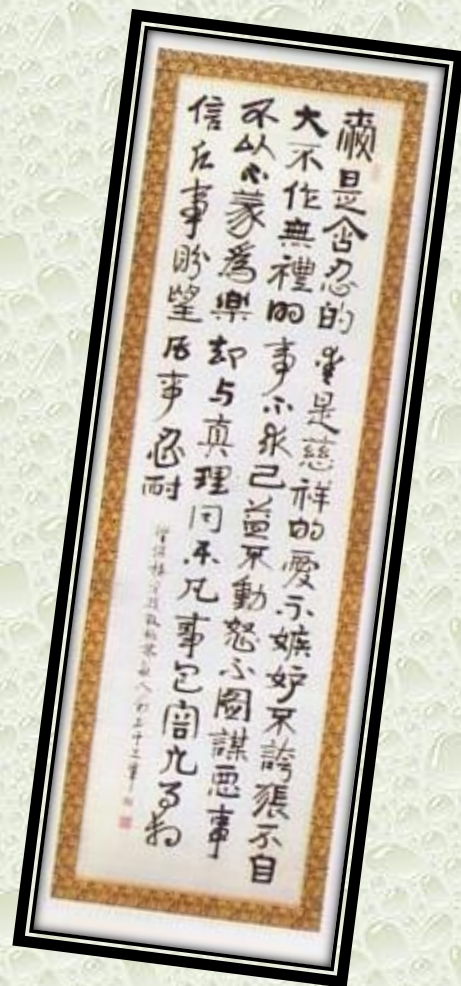 愛是含忍的愛是慈祥的愛不嫉妒不誇張不自
大不作無禮的事不求己益不動怒不圖謀惡事
不以不義爲樂却与真理同乐凡事包容凡事相
信凡事盼望凡事忍耐